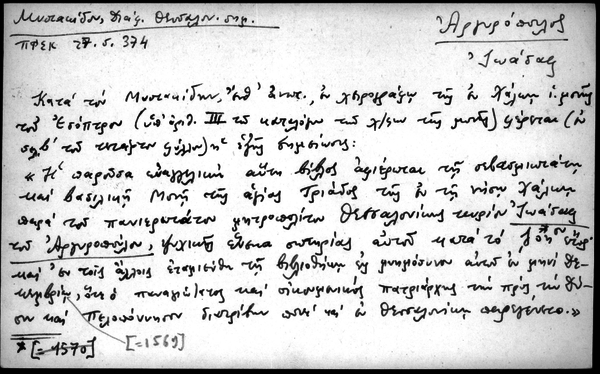 Μυστακίδου, Διάφ. Θεσσαλον. σημ.
ΠΦΣΚ 27. 5. 374
Ἀργυρόπουλος
Ἰωάσαφ
Κατὰ τὸν Μυστακίδην, ἔνθ' ἀνωτ., ἐν χειρογράφῳ τῆς ἐν Χάλκῃ ἱ. μονῆς
τοῦ Ἐσόπτρου (ὑπ' ἀριθ. III τοῦ καταλόγου τῶν χ/φων τῆς μονῆς) φέρεται (ἐν
σελ. β' τοῦ φύλλου) ἡ ἑξῆς σημείωσις:
« Ἡ παροῦσα εὐαγγελικὴ αὕτη βίβλος ἀφιέρωται τῇ σεβασμιωτάτῃ
καὶ βασιλικῇ Μονῇ τῆς ἁγίας Τριάδος τῆς ἐν τῇ νήσῳ Χάλκῃ
παρὰ τοῦ πανιερωτάτου μητροπολίτου Θεσσαλονίκης κυρίου Ἰωάσαφ
τοῦ Ἀργυροπούλου, ψυχικῆς ἕνεκα σωτηρίας αὐτοῦ κατὰ τὸ ͵ζοη* ἔτος
καὶ ἐν τοῖς ἄλλοις ἐταμιεύθη τῇ βιβλιοθήκῃ εἰς μνημόσυνον αὐτοῦ ἐν μηνὶ Δε-
κεμβρίῳ, ὅτε ὁ παναγιώτατος καὶ οἰκουμενικὸς πατριάρχης τὴν πρὸς τὴν δύ-
σιν καὶ Πελοπόννησον διατρίβων ποτὲ καὶ ἐν Θεσσαλονίκῃ παρεγένετο.»
* [= 1570] [= 1569]